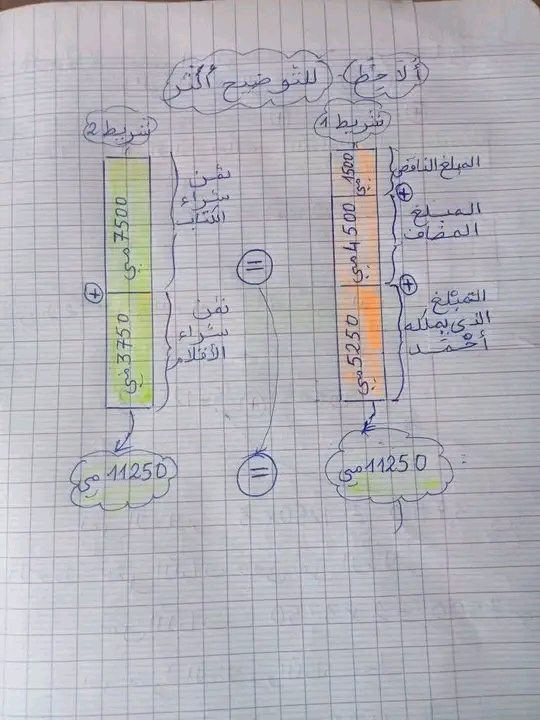 ألاحظ للتوضيح أكثر
شريط 1
1500 مي
المبلغ الناقص
+
4500 مي
المبلغ
المضاف
+
5250 مي
المبلغ
الذي يملكه
أحمد
11250 مي
=
=
شريط 2
7500 مي
ثمن
شراء
الكتاب
+
3750 مي
ثمن
شراء
الأقلام
11250 مي